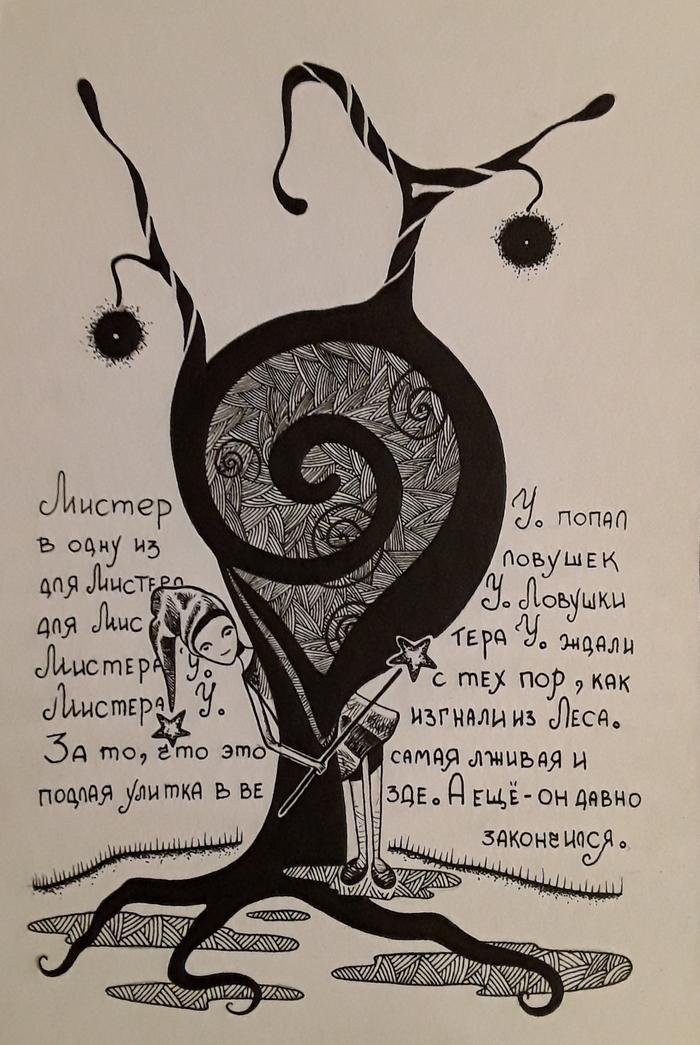 Мистер У. попал
в одну из ловушек
для Мистера У. Ловушки
для Мистера У. ждали
Мистера У. с тех пор, как
Мистера У. изгнали из Леса.
За то, что это самая лживая и
подлая улитка в везде. А ещё - он давно
закончился.